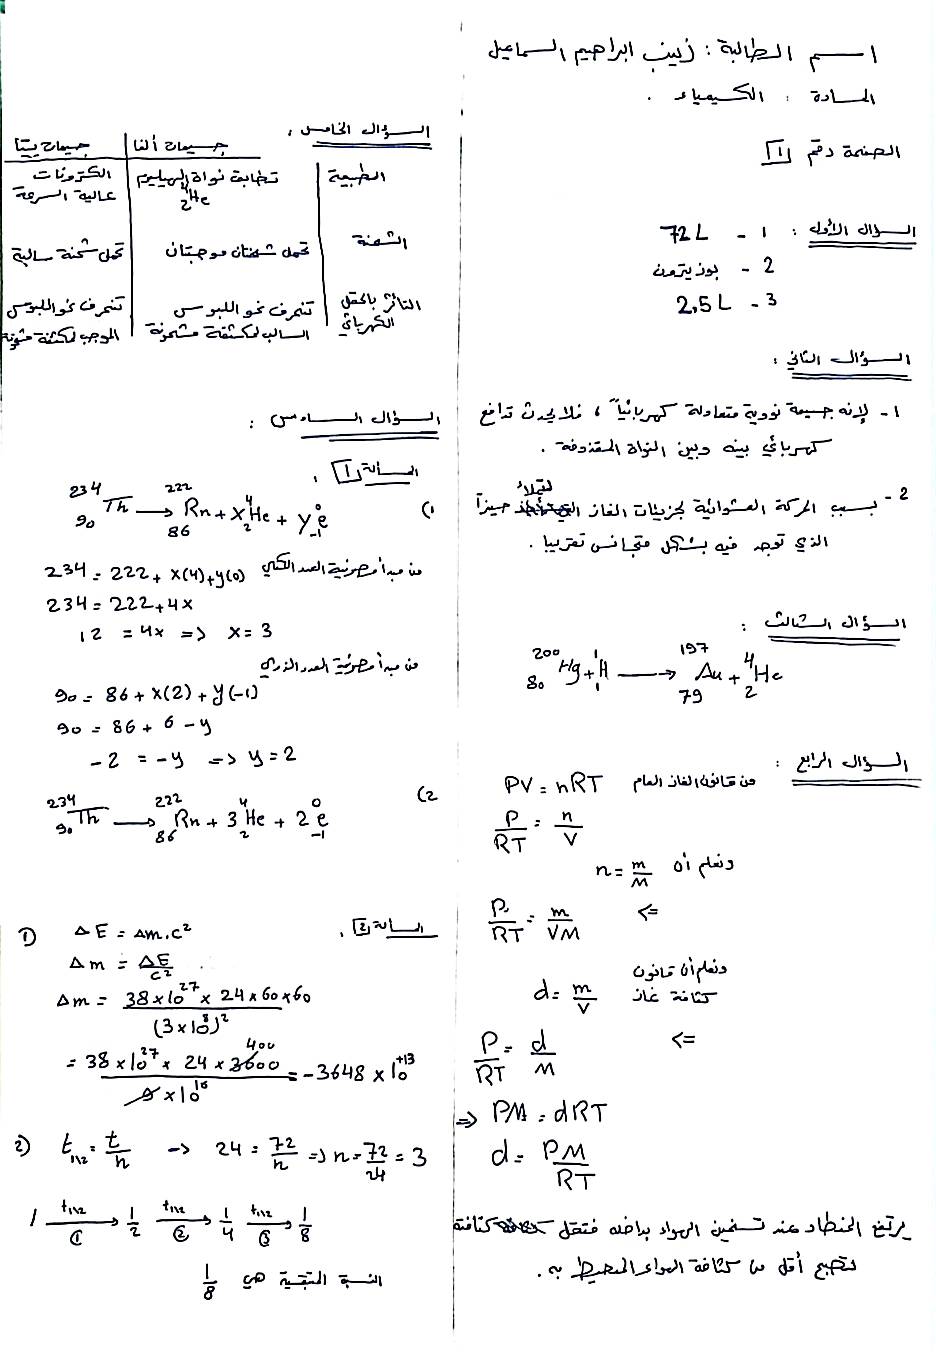 اسم الطالبة : زينب ابراهيم السماعيل
المادة : الكيمياء .
الصفحة رقم 1
السؤال الأول : 1 - 72 L
2 - بوزيترون
3 - 2,5 L
السؤال الثاني :
1 - لإنه جسيمة نووية متعادلة كهربائياً ، فلا يحدث تدافع
كهربائي بينه وبين النواة المقذوفة .
2 - بسبب الحركة العشوائية لجزيئات الغاز لتملأ حيزاً
الذي توجد فيه بشكل متجانس تقريبا .
السؤال الثالث :
²⁰⁰₈₀Hg + ¹₁H → ¹⁹⁷₇₉Au + ⁴₂He
السؤال الرابع :
من قانون الغاز العام PV = nRT
P/RT = n/V
ونعلم أن n = m/M
<= P/RT = m/VM
ونعلم أن قانون
كثافة غاز d = m/V
<= P/RT = d/M
=> PM = dRT
d = PM/RT
يرتفع المنطاد عند تسخين الهواء بداخله فتقل كثافة
لتصبح أقل من كثافة الهواء المحيط به .
السؤال الخامس :
جسيمات ألفا جسيمات بيتا
الطبيعة تطابق نواة الهيليوم ⁴₂He الكترونات
عالية السرعة
الشحنة تحمل شحنتان موجبتان تحمل شحنة سالبة
التأثر بالحقل تنحرف نحو اللبوس تنحرف نحو اللبوس
الكهربائي السالب لمكثفة مشحونة الموجب لمكثفة مشحونة
السؤال السادس :
المسألة 1 :
(1 ²³⁴₉₀Th → ²²²₈₆Rn + X⁴₂He + Y⁰₋₁e
من مبدأ مصونية العدد الكتلي 234 = 222 + X(4) + Y(0)
234 = 222 + 4X
12 = 4X => X = 3
من مبدأ مصونية العدد الذري
90 = 86 + X(2) + Y(-1)
90 = 86 + 6 - Y
-2 = -Y => Y = 2
(2 ²³⁴₉₀Th → ²²²₈₆Rn + 3⁴₂He + 2⁰₋₁e
المسألة 2 :
1) ΔE = Δm.c²
Δm = ΔE/c²
Δm = 38×10²⁷ × 24×60×60 / (3×10⁸)²
= 38×10²⁷ × 24 × 3600 400 / 9×10¹⁶ = -3648 × 10⁺¹³
2) t₁/₂ = t/n → 24 = 72/n => n = 72/24 = 3
1 t₁/₂→① 1/2 t₁/₂→② 1/4 t₁/₂→③ 1/8
النسبة المتبقية هي 1/8